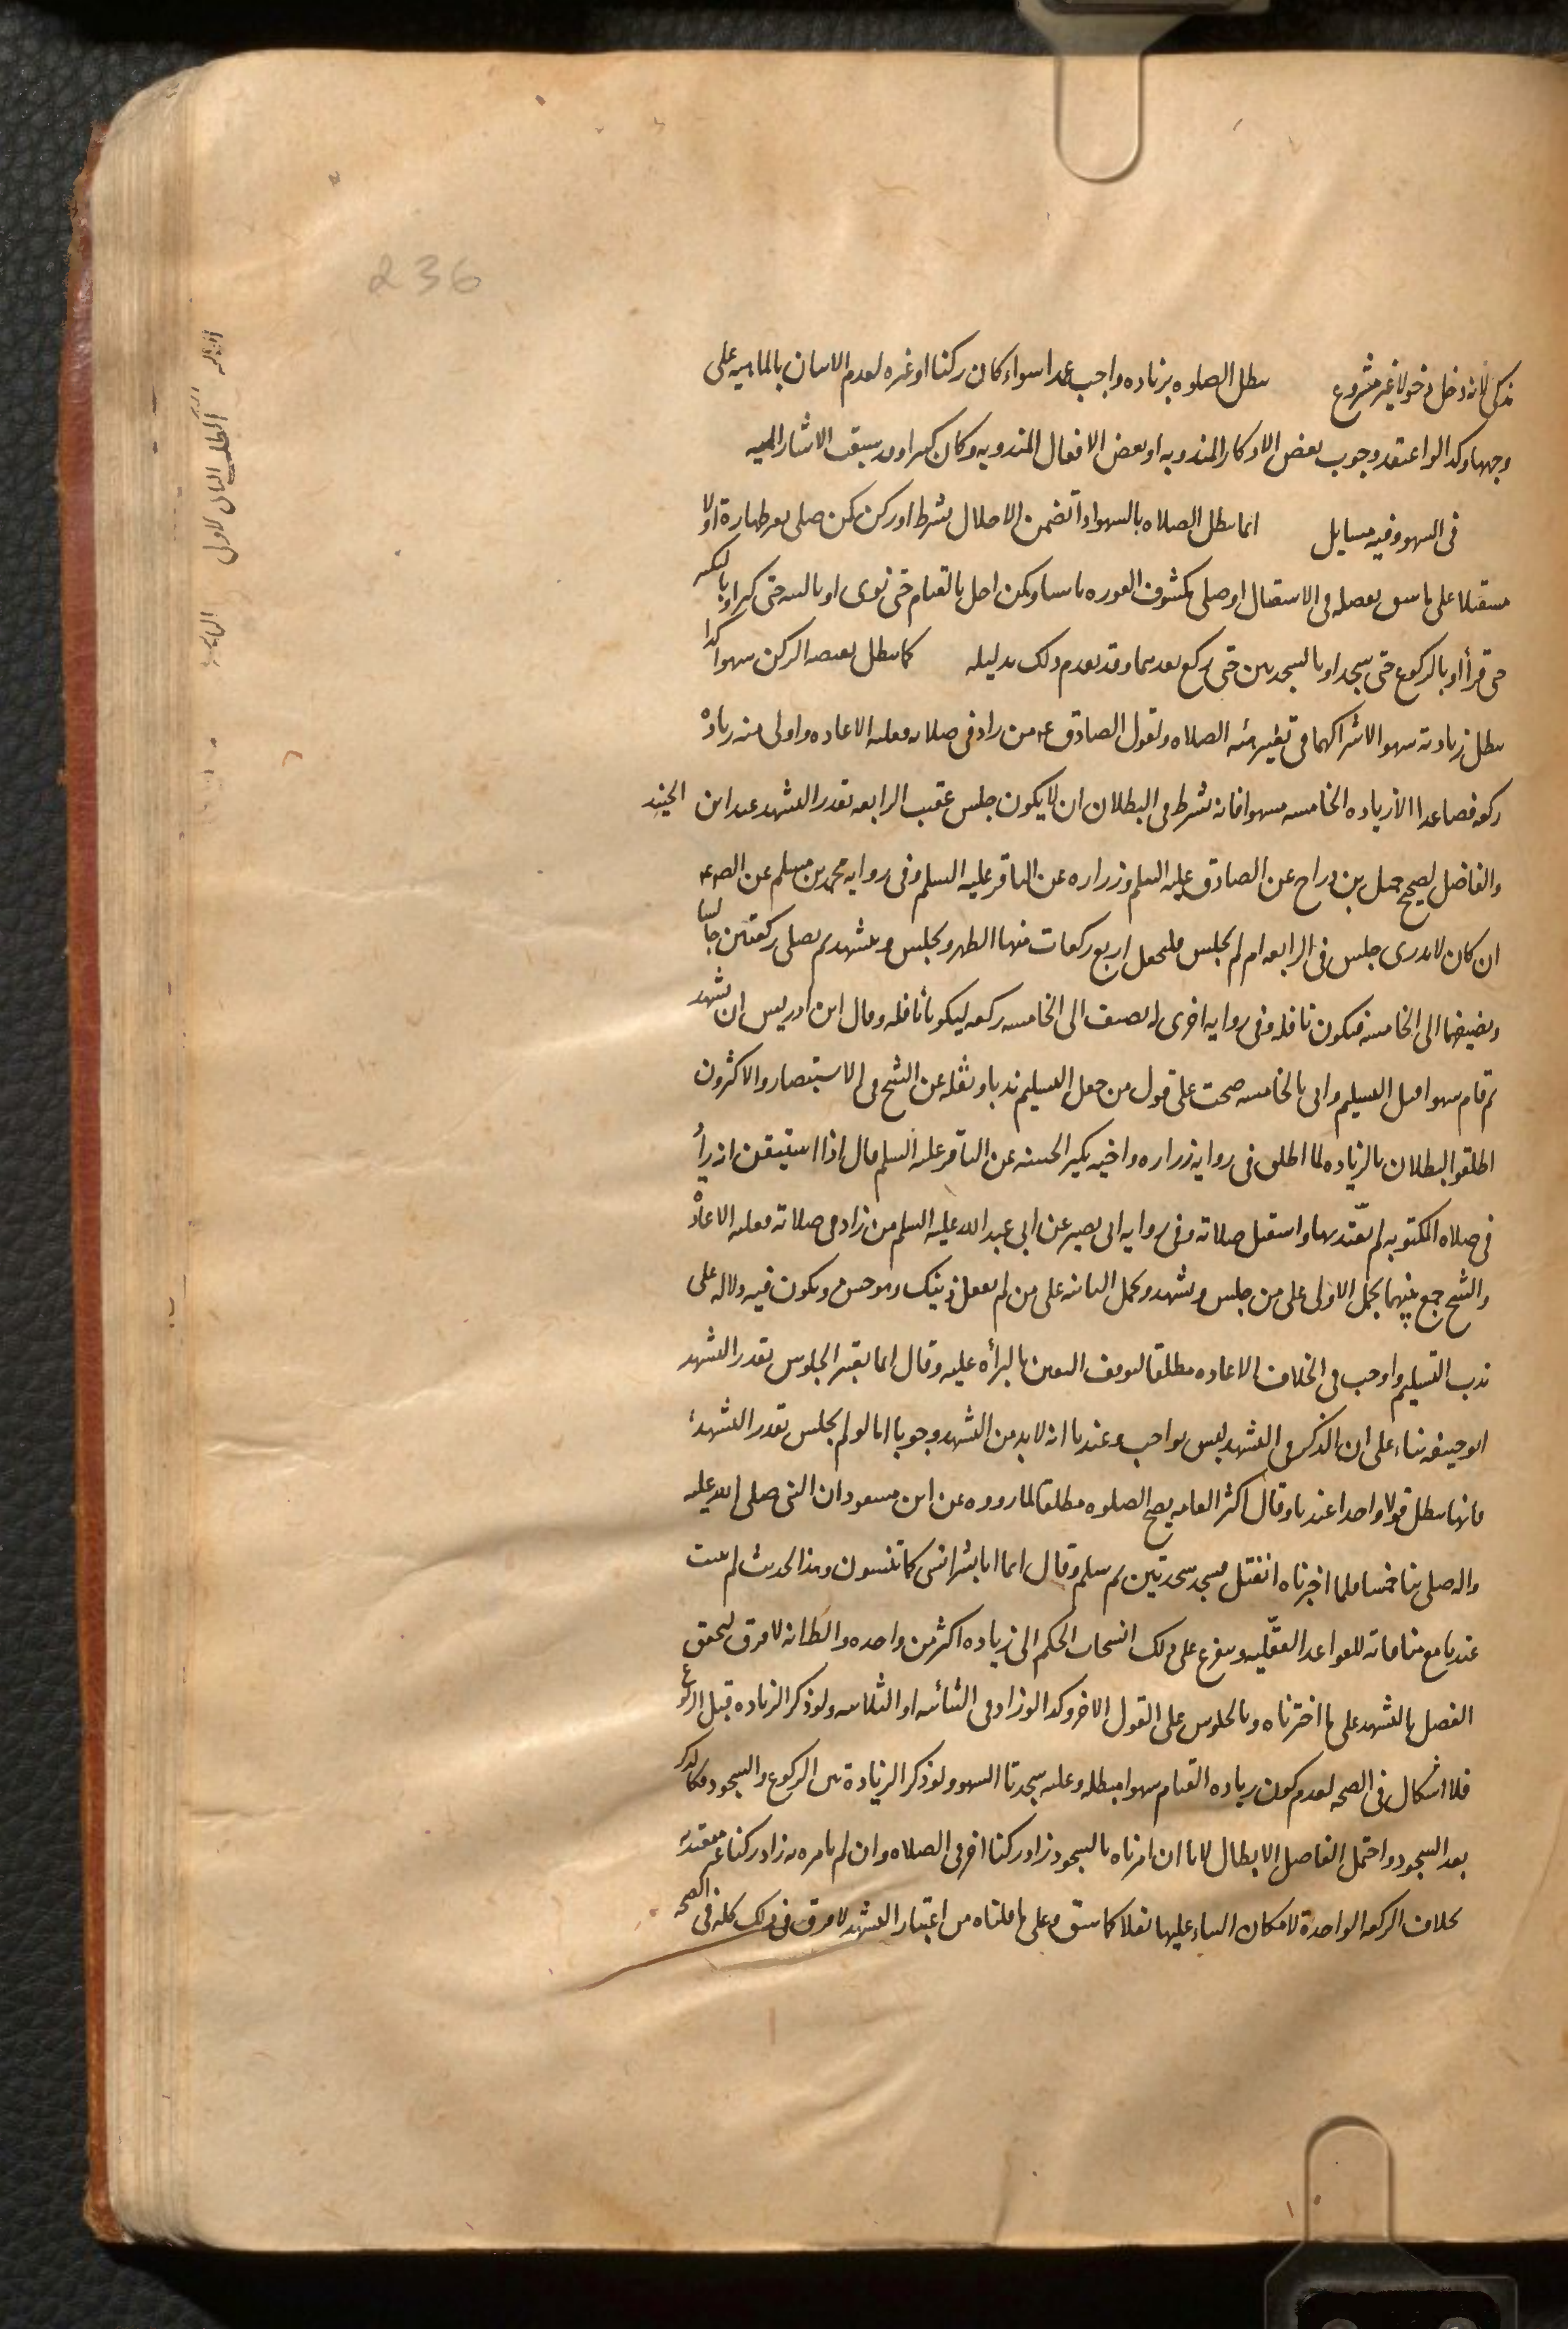 236
تذكر لانه دخل دخولا غير مشروع بطل الصلوه بزياده واجب عمدا سواء كان ركنا او غيره لعدم الاتيان بالماهيه على
وجهها وكذا لو اعتقد وجوب بعض الاذكار المندوبه او بعض الافعال المندوبه وكان كثيرا وقد سبق الاشاره اليه
فى السهو وفيه مسايل انما تبطل الصلاه بالسهو اذا تضمن الاخلال بشرط او ركن كمن صلى بغير طهارة او لا
مستقبلا على ما سبق تفصيله فى الاستقبال او صلى مكشوف العوره ناسيا وكمن اخل بالقيام حتى نوى او بالنيه حتى كبر او بالتكبير
حتى قرأ او بالركوع حتى سجد او بالسجدتين حتى ركع بعدهما وقد تقدم ذلك بدليله كما تبطل بنقيصه الركن سهوا كذا
تبطل بزيادته سهوا لاشتراكهما فى تغيير هيئه الصلاه ولقول الصادق ع من زاد فى صلاته فعليه الاعاده واولى منه زيادة
ركعه فصاعدا الا زياده الخامسه سهوا فانه يشترط فى البطلان ان لا يكون جلس عقيب الرابعه بقدر التشهد عند ابن الجنيد
والفاضل لصحيح جميل بن دراج عن الصادق عليه السلم وزراره عن الباقر عليه السلم وفى روايه محمد بن مسلم عن الصادق ع
ان كان لا يدرى جلس فى الرابعه ام لم يجلس فليجعل اربع ركعات منها الظهر ويجلس ويتشهد ثم يصلى ركعتين جالسا
ويضيفها الى الخامسه فيكون نافله وفى روايه اخرى له يضيف الى الخامسه ركعه ليكونا نافله وقال ابن ادريس ان تشهد
ثم قام سهوا قبل التسليم واتى بالخامسه صحت على قول من جعل التسليم ندبا ونقله عن الشيخ فى الاستبصار والاكثرون
اطلقوا البطلان بالزياده لما اطلق فى روايه زراره واخيه بكير الحسنه عن الباقر عليه السلم قال اذا استيقن انه زاد
فى صلاه المكتوبه لم يعتد بها واستقبل صلاته وفى روايه ابى بصير عن ابى عبد الله عليه السلم من زاد فى صلاته فعليه الاعادة
والشيخ جمع بينهما بحمل الاولى على من جلس وتشهد وحمل الثانيه على من لم يفعل ذينك وهو حسن ويكون فيه دلاله على
ندب التسليم واوجب فى الخلاف الاعاده مطلقا لتوقف اليقين بالبرأه عليه وقال انما يعتبر الجلوس بقدر التشهد
ابو حنيفه بناء على ان الذكر فى التشهد ليس بواجب وعندنا انه لابد من التشهد وجوبا اما لو لم يجلس بقدر التشهد
فانها تبطل قولا واحدا عندنا وقال اكثر العامه يصح الصلوه مطلقا لما رووه عن ابن مسعود ان النبى صلى الله عليه
واله صلى بنا خمسا فلما اخبرناه انفتل فسجد سجدتين ثم سلم وقال انما انا بشر انسى كما تنسون وهذا الحديث لم يثبت
عندنا مع منافاته للقواعد العقليه ويتفرع على ذلك انسحاب الحكم الى زياده اكثر من واحده والظ انه لا فرق لتحقق
الفصل بالتشهد على ما اخترناه وبالجلوس على القول الاخر وكذا لو زاد فى الثنائيه او الثلاثيه ولو ذكر الزياده قبل الركوع
فلا اشكال فى الصحه لعدم كون زياده القيام سهوا مبطله وعليه سجدتا السهو ولو ذكر الزيادة بين الركوع والسجود فكالذكر
بعد السجود واحتمل الفاضل الابطال لانا ان امرناه بالسجود زاد ركنا اخر فى الصلاه وان لم نامره به زاد ركنا غير متعبد
بخلاف الركعه الواحدة لامكان البناء عليها نفلا كما سبق وعلى ما قلناه من اعتبار التشهد لا فرق فى ذلك كله فى الصحه